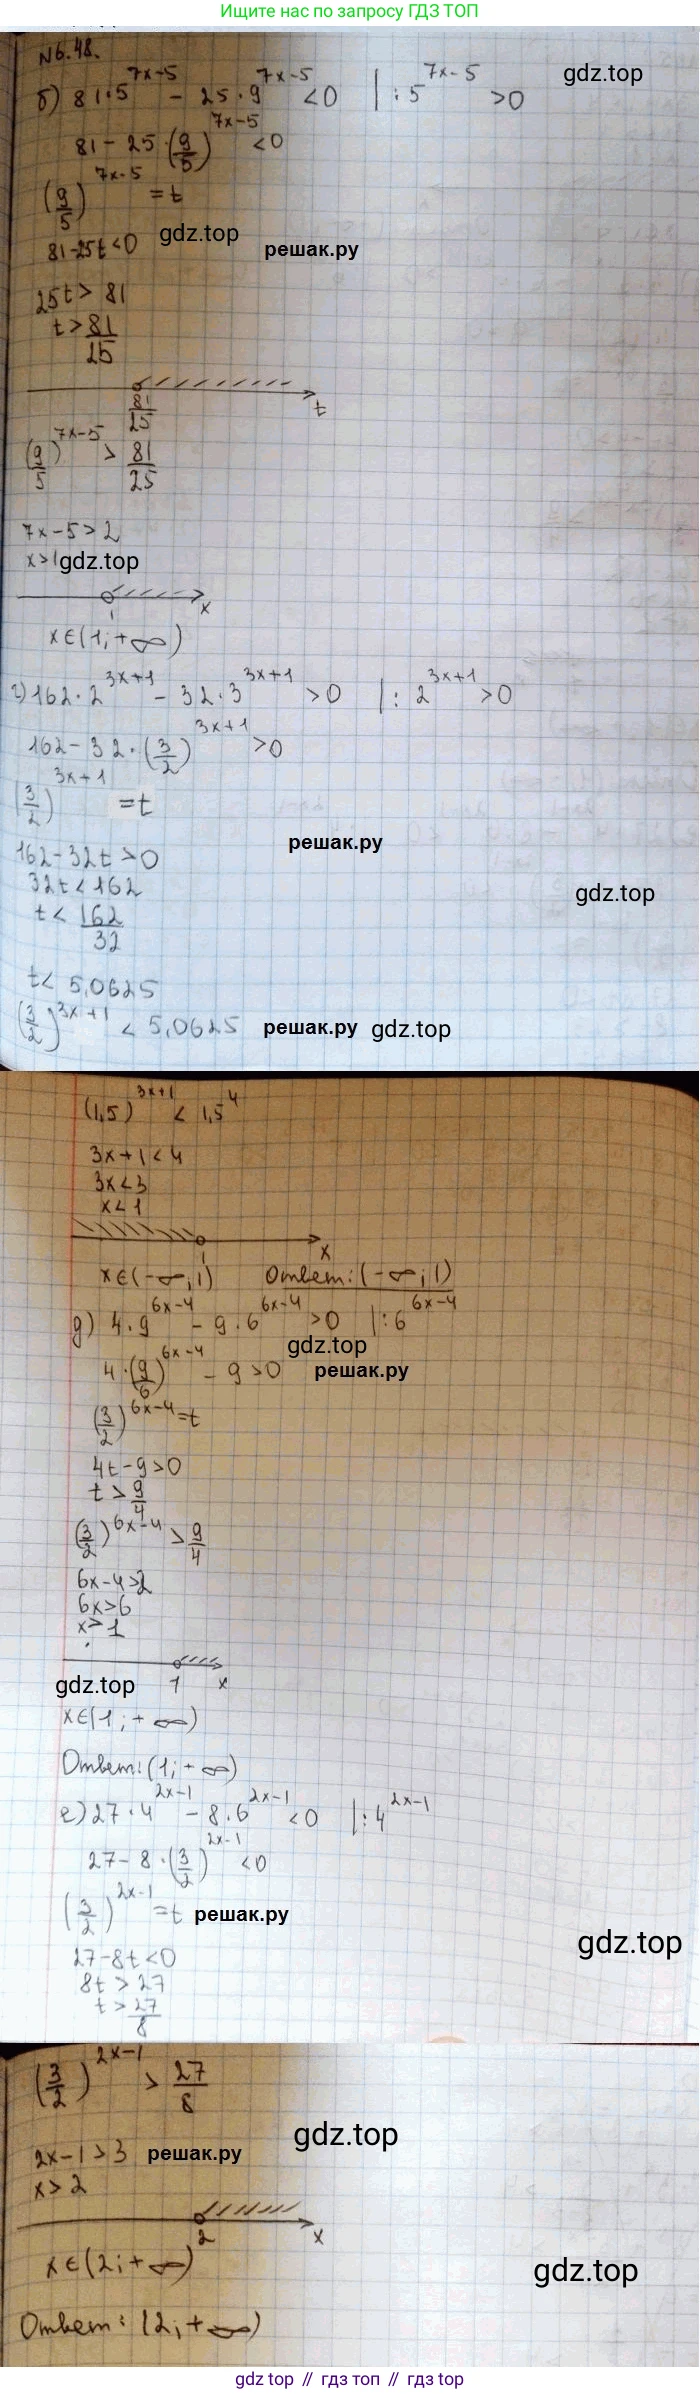 Ищите по запросу ГДЗ ТОП
№6.48.
gdz.top
б) 81·5^(7x-5) - 25·9^(7x-5) <0 |:5^(7x-5) >0
81 - 25·(9/5)^(7x-5) <0
(9/5)^(7x-5) = t
gdz.top
81-25t<0
решак.ру
25t > 81
t > 81/25
81/25 t
(9/5)^(7x-5) > 81/25
7x-5>2
x>1
gdz.top
1 x
x∈(1;+∞)
г) 162·2^(3x+1) - 32·3^(3x+1) >0 |:2^(3x+1) >0
162 - 32·(3/2)^(3x+1) >0
(3/2)^(3x+1) = t
решак.ру
162-32t>0
32t<162
gdz.top
t < 162/32
t < 5,0625
(3/2)^(3x+1) < 5,0625
решак.ру gdz.top
(1,5)^(3x+1) < 1,5^4
3x+1<4
3x<3
x<1
1 x
x∈(-∞;1) Ответ: (-∞;1)
д) 4·9^(6x-4) - 9·6^(6x-4) >0 |:6^(6x-4)
gdz.top
4·(9/6)^(6x-4) - 9>0
решак.ру
(3/2)^(6x-4) = t
4t-9>0
t > 9/4
(3/2)^(6x-4) > 9/4
6x-4>2
6x>6
x>1
gdz.top
1 x
x∈(1;+∞)
Ответ: (1;+∞)
е) 27·4^(2x-1) - 8·6^(2x-1) <0 |:4^(2x-1)
27 - 8·(3/2)^(2x-1) <0
(3/2)^(2x-1) = t
решак.ру
27-8t<0
gdz.top
8t > 27
t > 27/8
(3/2)^(2x-1) > 27/8
gdz.top
2x-1>3
решак.ру
x>2
2 x
x∈(2;+∞)
gdz.top
Ответ: (2;+∞)
gdz top // гдз топ // gdz top